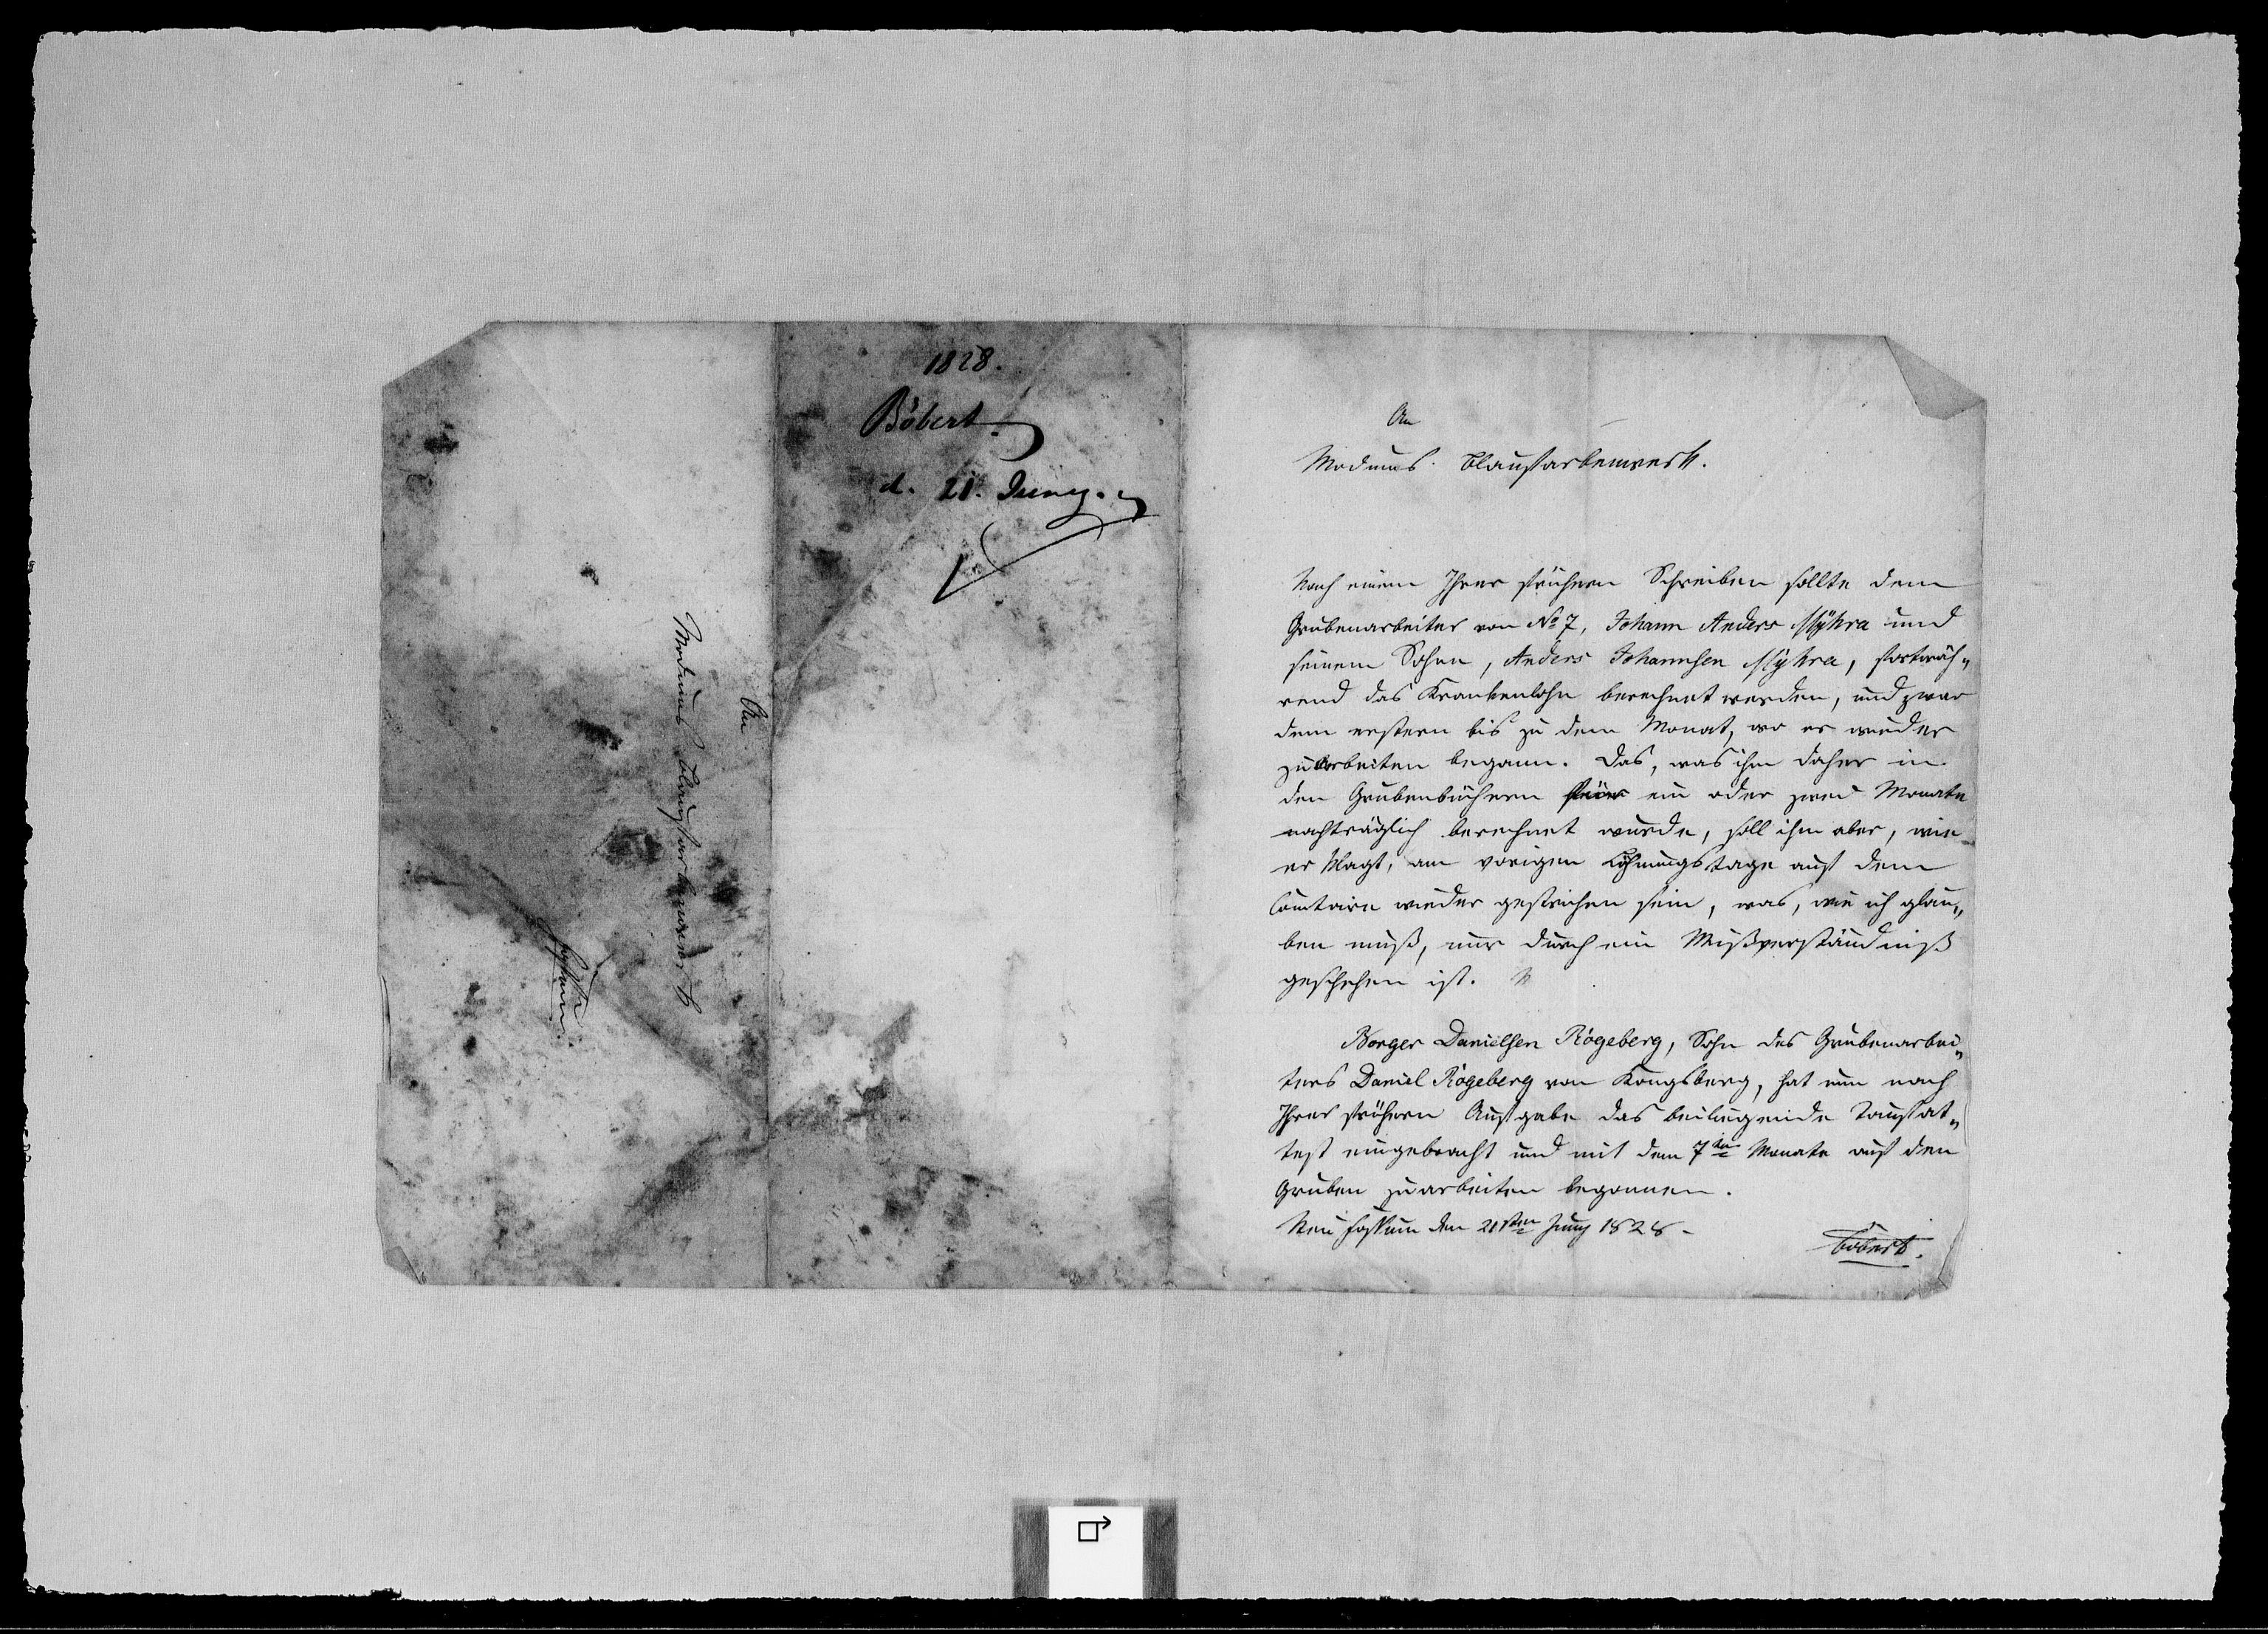 1828.
Böbert
d. 21. Juny.
An
Modums Blaufarbenwerk
An
Modums Blaufarbenwerk.
Nach einem Ihrer frühern Schreiben sollte dem
Grubenarbeiter von No 7, Johann Anders Myhra und
seinem Sohne, Anders Johannsen Myhra, fortwäh„
rend das Krankenlohn berechnet werden, und zwar
dem erstern bis zu dem Monat, wo er wieder
zu arbeiten begann. Das, was ihm daher in
den Grubenbüchern für ein oder zwei Monate
nachträglich berechnet wurde, soll ihm aber, wie
er klagt, am vorigen Löhnungstage auf dem
Comtoire wieder gestrichen sein, was, wie ich glau„
ben muß, nur durch ein Mißverständniß
geschehen ist.
Borger Danielsen Rögeberg, Sohn des Grubenarbei„
ters Daniel Rögeberg von Kongsberg, hat nun nach
Ihrer frühern Aufgabe das beiliegende Taufat„
test eingebracht und mit dem 7ten Monate auf den
Gruben zu arbeiten begonnen.
Neu Fossum den 21sten Juny 1828.
Böbert.